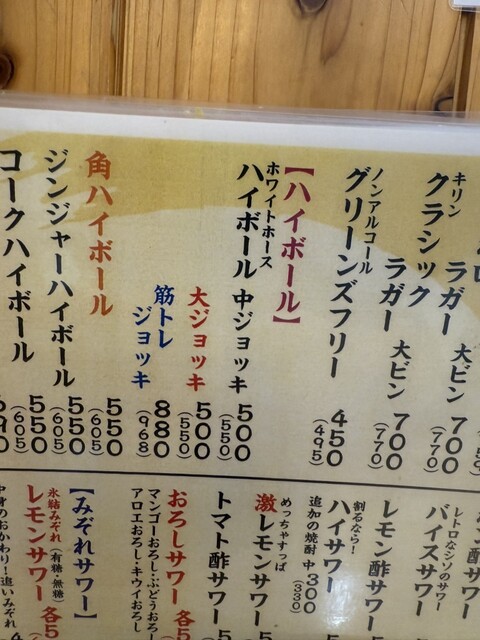 ラガー 大ビン 700
(770)
キリン
クラシック
ラガー 大ビン 700
(770)
ノンアルコール
グリーンズフリー 450
(495)
【ハイボール】
ホワイトホース
ハイボール 中ジョッキ 500
(550)
大ジョッキ 500
(550)
筋トレ
ジョッキ 880
(968)
角ハイボール 550
(605)
ジンジャーハイボール 550
(605)
コークハイボール 550
(605)
レトロなシソのサワー
バイスサワー
レモン酢サワー
割るなら!
ハイサワー
追加の焼酎 中300
(330)
めっちゃすっぱ
激レモンサワー 5
トマト酢サワー 5
おろしサワー 各5
マンゴーおろし・ぶどうおろし
アロエおろし・キウイおろし
【みぞれサワー】
氷結みぞれ(有糖・無糖)
レモンサワー 各5
中身のおかわり!追いみぞれ 4